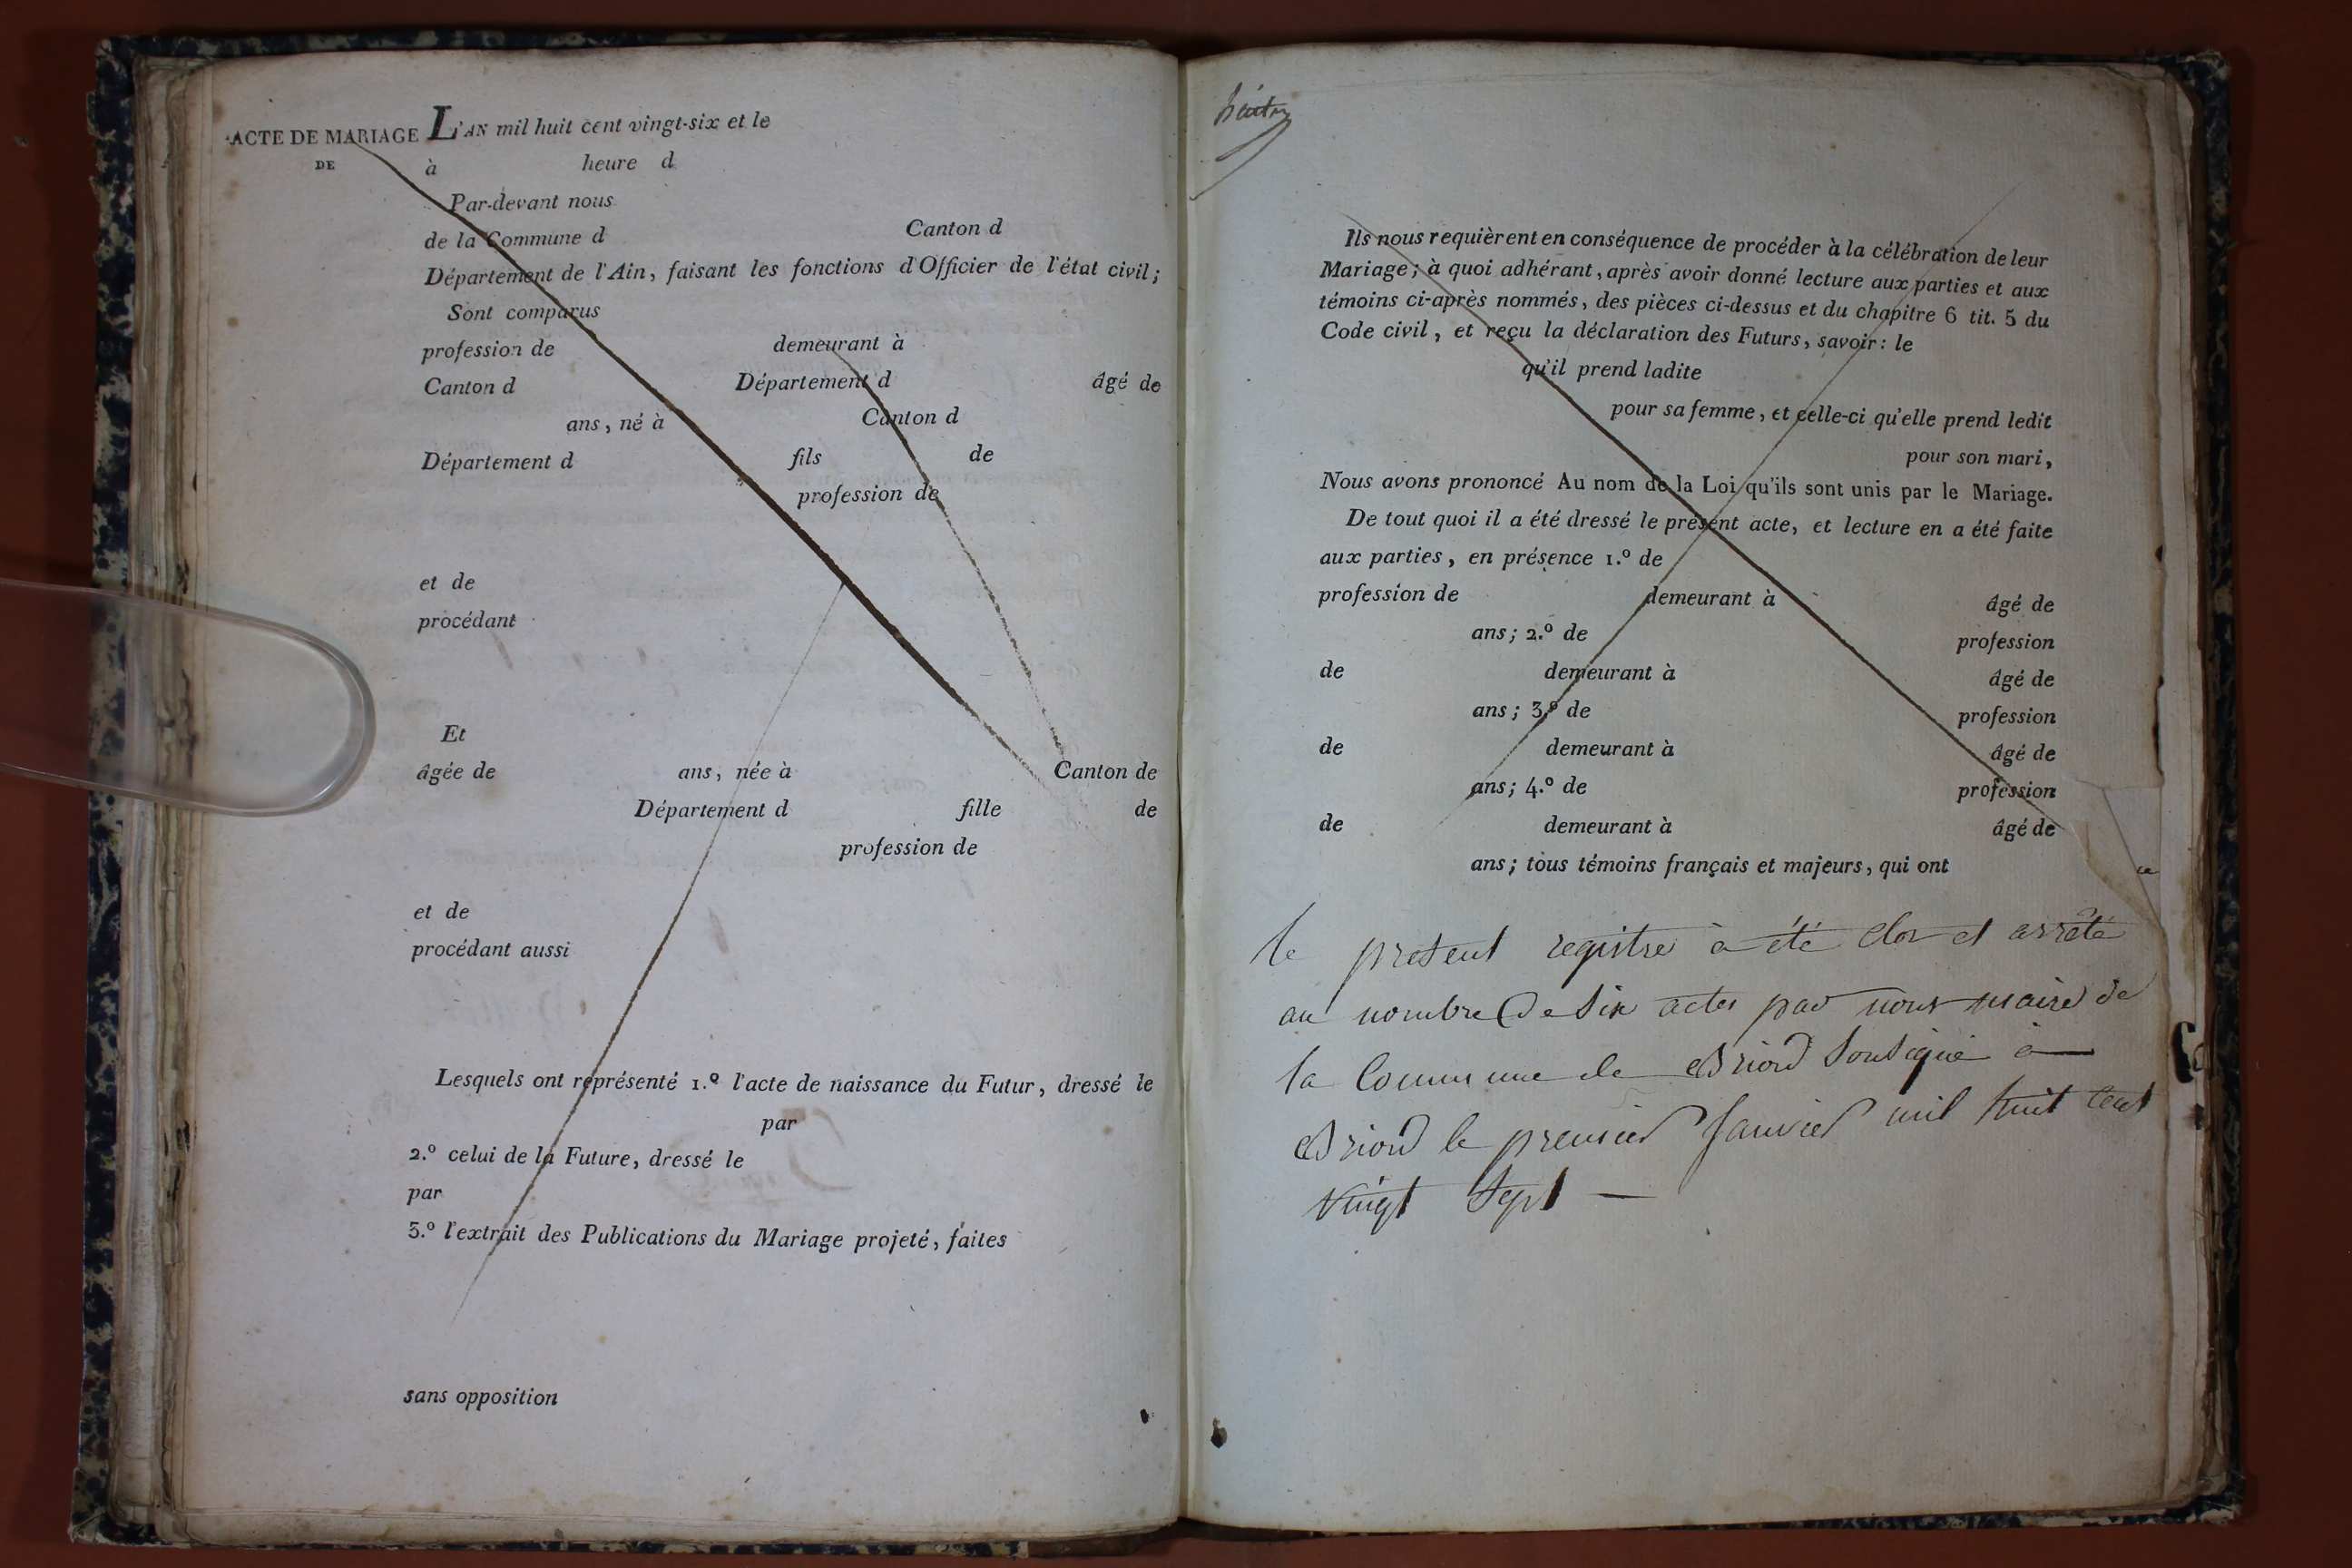 ACTE DE MARIAGE
DE
L'AN mil huit cent vingt-six et le
à heure d
Par-devant nous
de la Commune d Canton d
Département de l'Ain, faisant les fonctions d'Officier de l'état civil;
Sont comparus
profession de demeurant à
Canton d Département d âgé de
ans, né à Canton d
Département d fils de
profession de
et de
procédant
Et
âgée de ans, née à Canton de
Département d fille de
profession de
et de
procédant aussi
Lesquels ont représenté 1.º l'acte de naissance du Futur, dressé le
par
2.º celui de la Future, dressé le
par
3.º l'extrait des Publications du Mariage projeté, faites
sans opposition
Ils nous requièrent en conséquence de procéder à la célébration de leur
Mariage; à quoi adhérant, après avoir donné lecture aux parties et aux
témoins ci-après nommés, des pièces ci-dessus et du chapitre 6 tit. 5 du
Code civil, et reçu la déclaration des Futurs, savoir: le
qu'il prend ladite
pour sa femme, et celle-ci qu'elle prend ledit
pour son mari,
Nous avons prononcé Au nom de la Loi qu'ils sont unis par le Mariage.
De tout quoi il a été dressé le présent acte, et lecture en a été faite
aux parties, en présence 1.º de
profession de demeurant à âgé de
ans; 2.º de profession
de demeurant à âgé de
ans; 3.º de profession
de demeurant à âgé de
ans; 4.º de profession
de demeurant à âgé de
ans; tous témoins français et majeurs, qui ont
le present registre à été clos et arrêté
au nombre de six actes par nous maire de
la Commune de Briord soussigné à
Briord le premier Janvier mil huit cent
vingt sept —